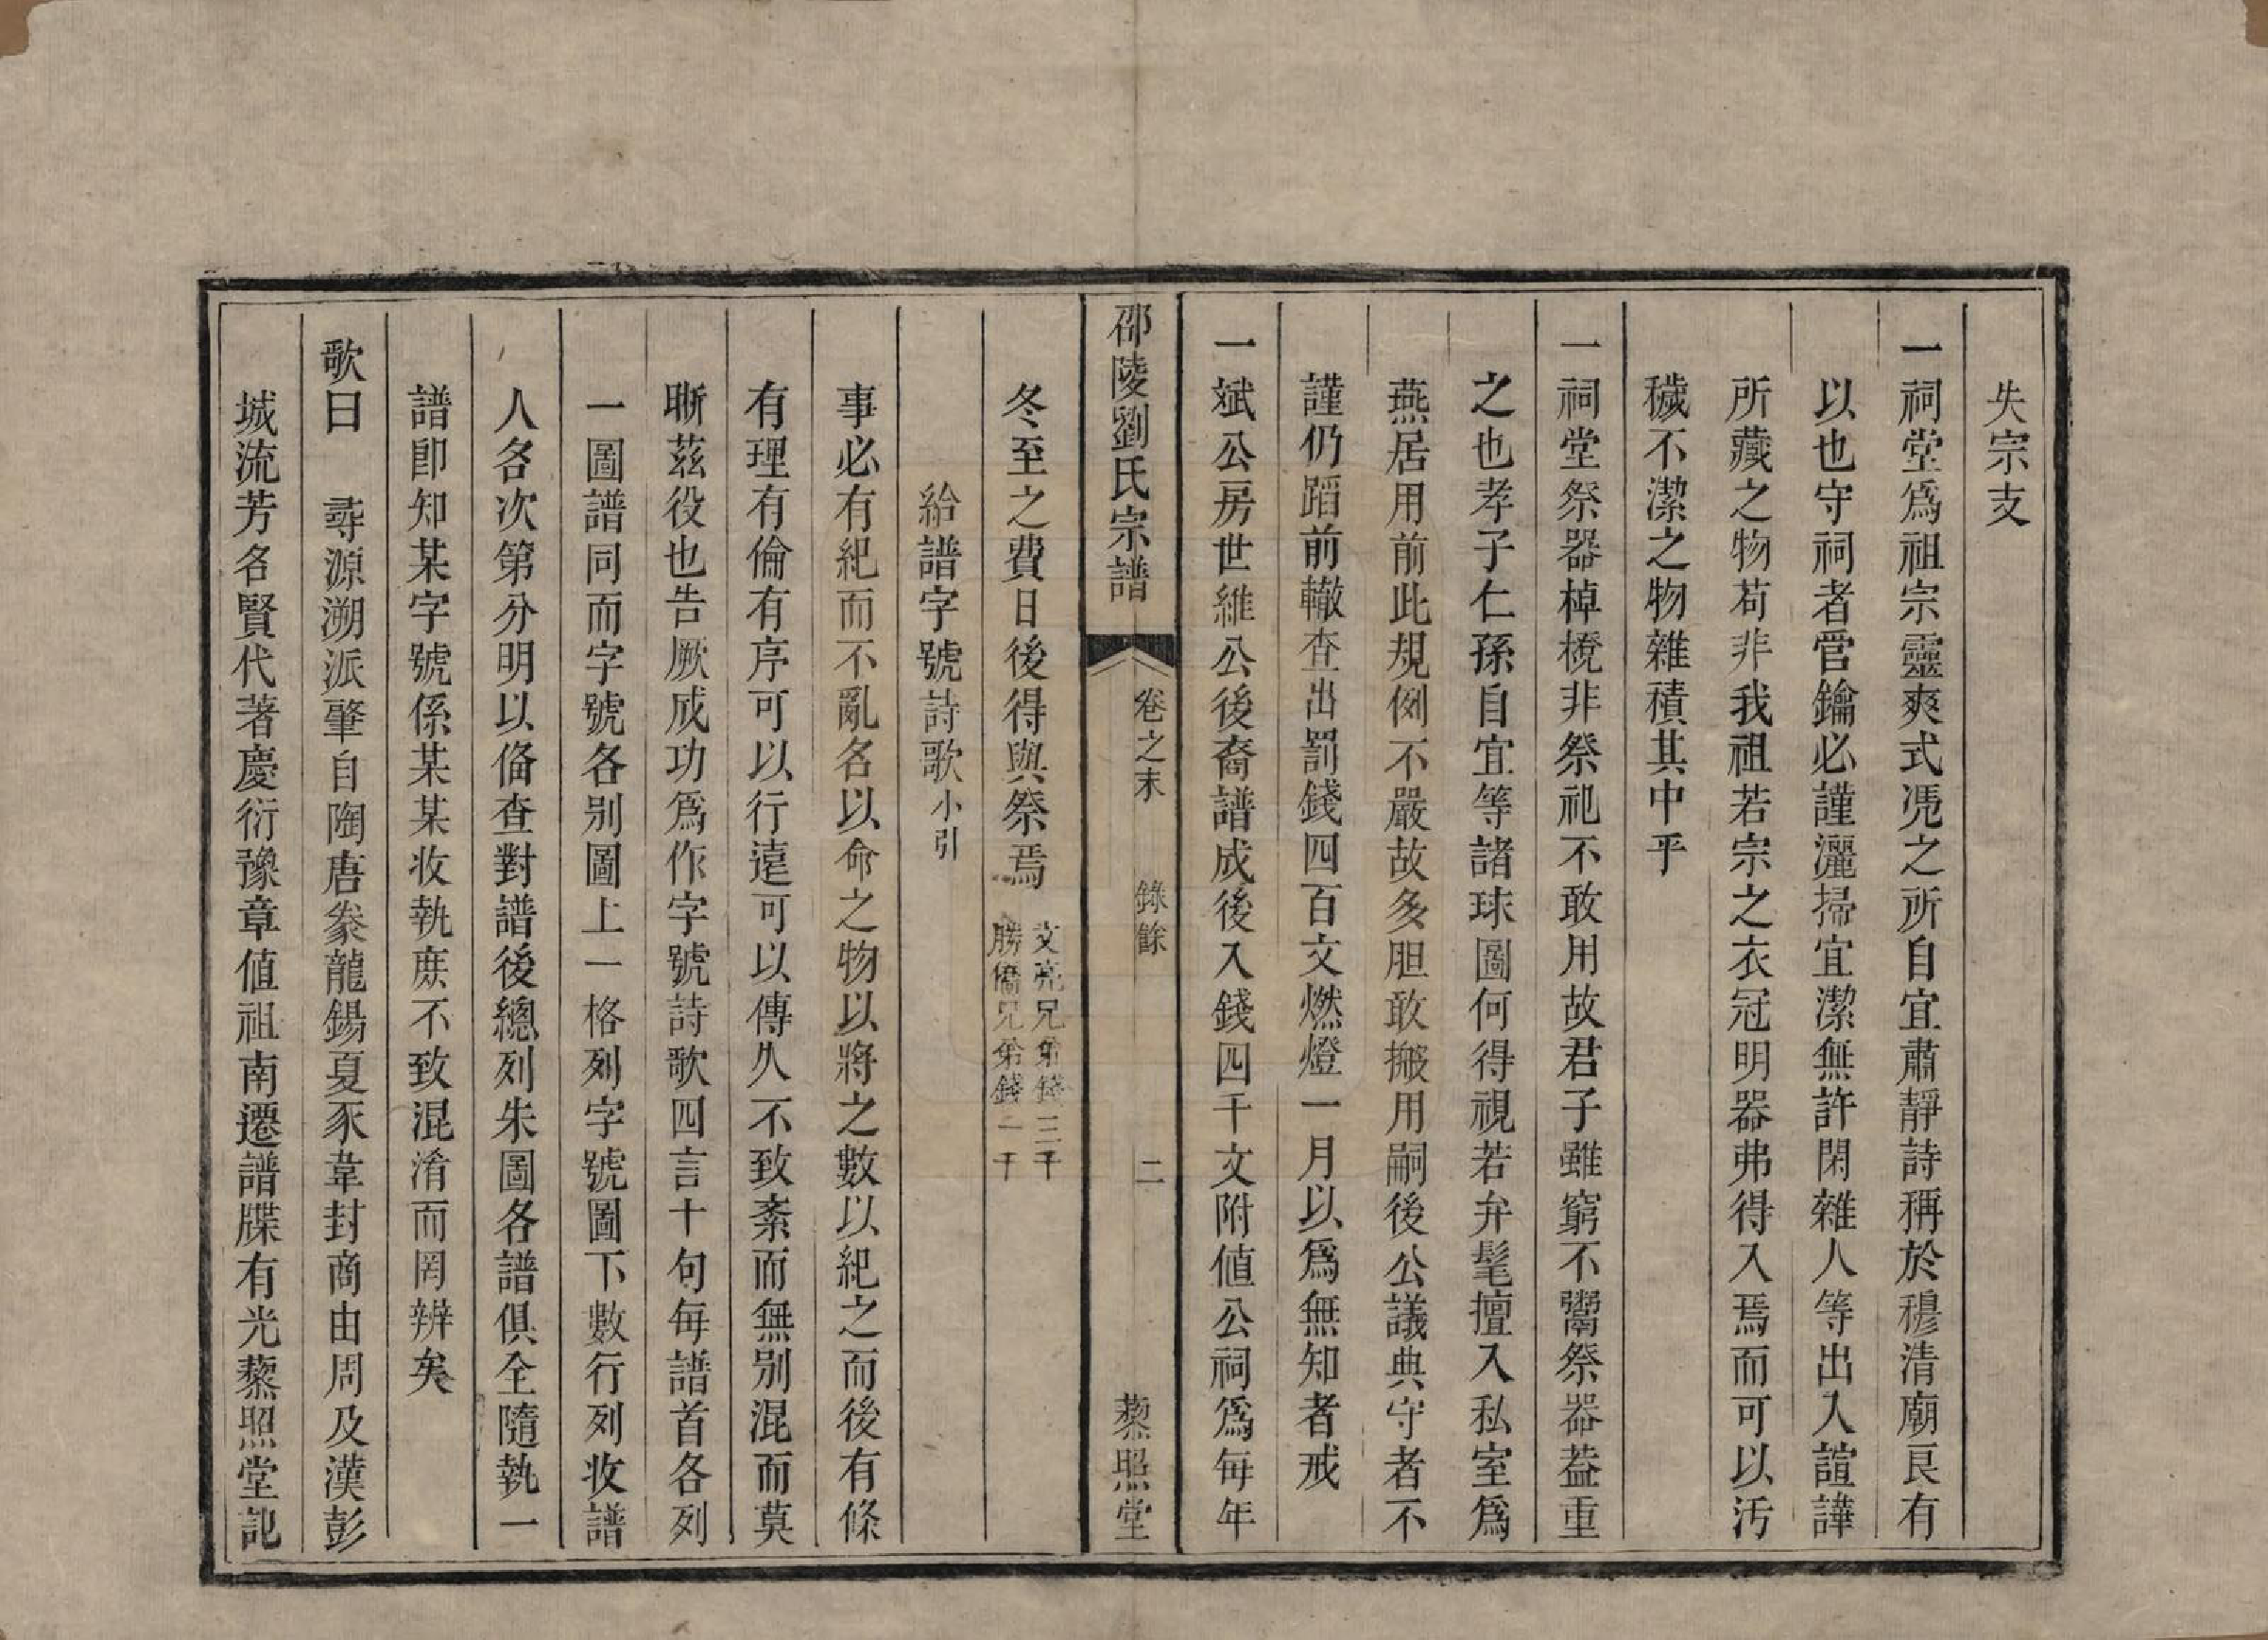 失宗支
一祠堂爲祖宗靈爽式凴之所自宜肅靜詩稱於穆清廟良有
以也守祠者管鑰必謹灑掃宜潔無許閑雜人等出入諠譁
所藏之物苟非我祖若宗之衣冠明器弗得入焉而可以汚
穢不潔之物雜積其中乎
一祠堂祭器棹櫈非祭祀不敢用故君子雖窮不鬻祭器葢重
之也孝子仁孫自宜等諸球圖何得視若弁髦擅入私室爲
燕居用前此規例不嚴故多胆敢搬用嗣後公議典守者不
謹仍蹈前轍查出罰錢四百文燃燈一月以爲無知者戒
一斌公房世維公後裔譜成後入錢四千文附値公祠爲每年
邵陵劉氏宗譜 卷之末 錄餘 二 藜照堂
冬至之費日後得與祭焉 文亮兄弟錢三千
勝僑兄弟錢一千
給譜字號詩歌小引
事必有紀而不亂名以命之物以將之數以紀之而後有條
有理有倫有序可以行遠可以傳久不致紊而無別混而莫
晣茲役也告厥成功爲作字號詩歌四言十句每譜首各列
一圖譜同而字號各別圖上一格列字號圖下數行列收譜
人各次第分明以俻查對譜後總列朱圖各譜俱全隨執一
譜卽知某字號係某某收執庶不致混淆而罔辨矣
歌曰 尋源溯派肇自陶唐豢龍錫夏豕韋封商由周及漢彭
城流芳名賢代著慶衍豫章值祖南遷譜牒有光藜照堂記